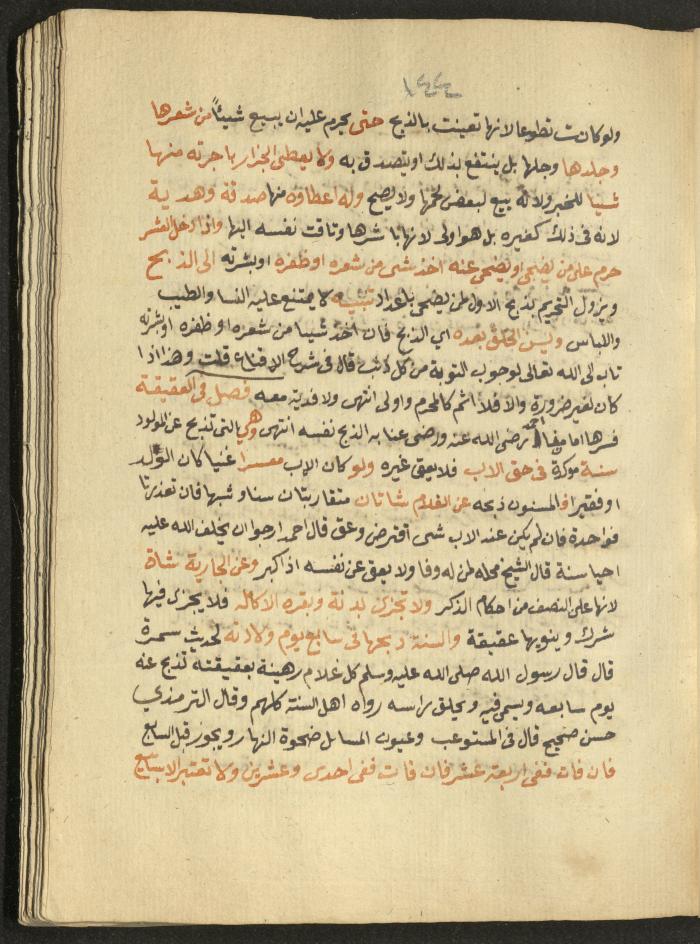 ١٤٤
ولو كانت تطوعا لانها تعينت بالذبح حتى يحرم عليه ان يبيع شيئاً من شعرها
وجلدها وجلها بل ينتفع بذلك او يتصدق به ولا يعطى الجزار باجرته منها
شيا للخبر ولانه بيع لبعض لحمها ولا يصح وله اعطاؤه منها صدقة وهدية
لانه في ذلك كغيره بل هو اولى لانه باشرها وتاقت نفسه اليها واذا دخل العشر
حرم على من يضحي او يضحى عنه اخذ شي من شعره او ظفره او بشرته الى الذبح
ويزول التحريم بذبح الاول لمن يضحي باعداد تنبيه لا يمتنع عليه النسا والطيب
واللباس ويسن الحلق بعده اي الذبح فان اخذ شيا من شعره او ظفره او بشرته
تاب الى الله تعالى لوجوب التوبة من كل ذنب قال في شرح الاقناع قلت وهذا اذا
كان لغير ضرورة والا فلا اثم كالمحرم واولى انتهى ولا فدية معه فصل في العقيقة
فسرها امامنا احمد رضي الله عنه ورضي عنا به الذبح نفسه انتهى وهي التي تذبح عن المولود
سنة مؤكدة في حق الاب فلا يعق غيره ولو كان الاب معسرا غنيا كان الولد
او فقيرا والمسنون ذبحه عن الغلام شاتان متقاربتان سنا وشبها فان تعذرتا
فواحدة فان لم يكن عند الاب شي اقترض وعق قال احمد ارجو ان يخلف الله عليه
احيا سنة قال الشيخ محله لمن له وفا ولا يعق عن نفسه اذا كبر وعن الجارية شاة
لانها على النصف من احكام الذكر ولا تجزي بدنة وبقرة الا كاملة فلا يجزي فيها
شرك وينويها عقيقة والسنة ذبحها في سابع يوم ولادته لحديث سمرة
قال قال رسول الله صلى الله عليه وسلم كل غلام رهينة بعقيقته تذبح عنه
يوم سابعه ويسمى فيه ويحلق راسه رواه اهل السنة كلهم وقال الترمذي
حسن صحيح قال في المستوعب وعيون المسائل ضحوة النهار ويجوز قبل السابع
فان فات ففي اربعة عشر فان فات ففي احدى وعشرين ولا تعتبر الاسابيع